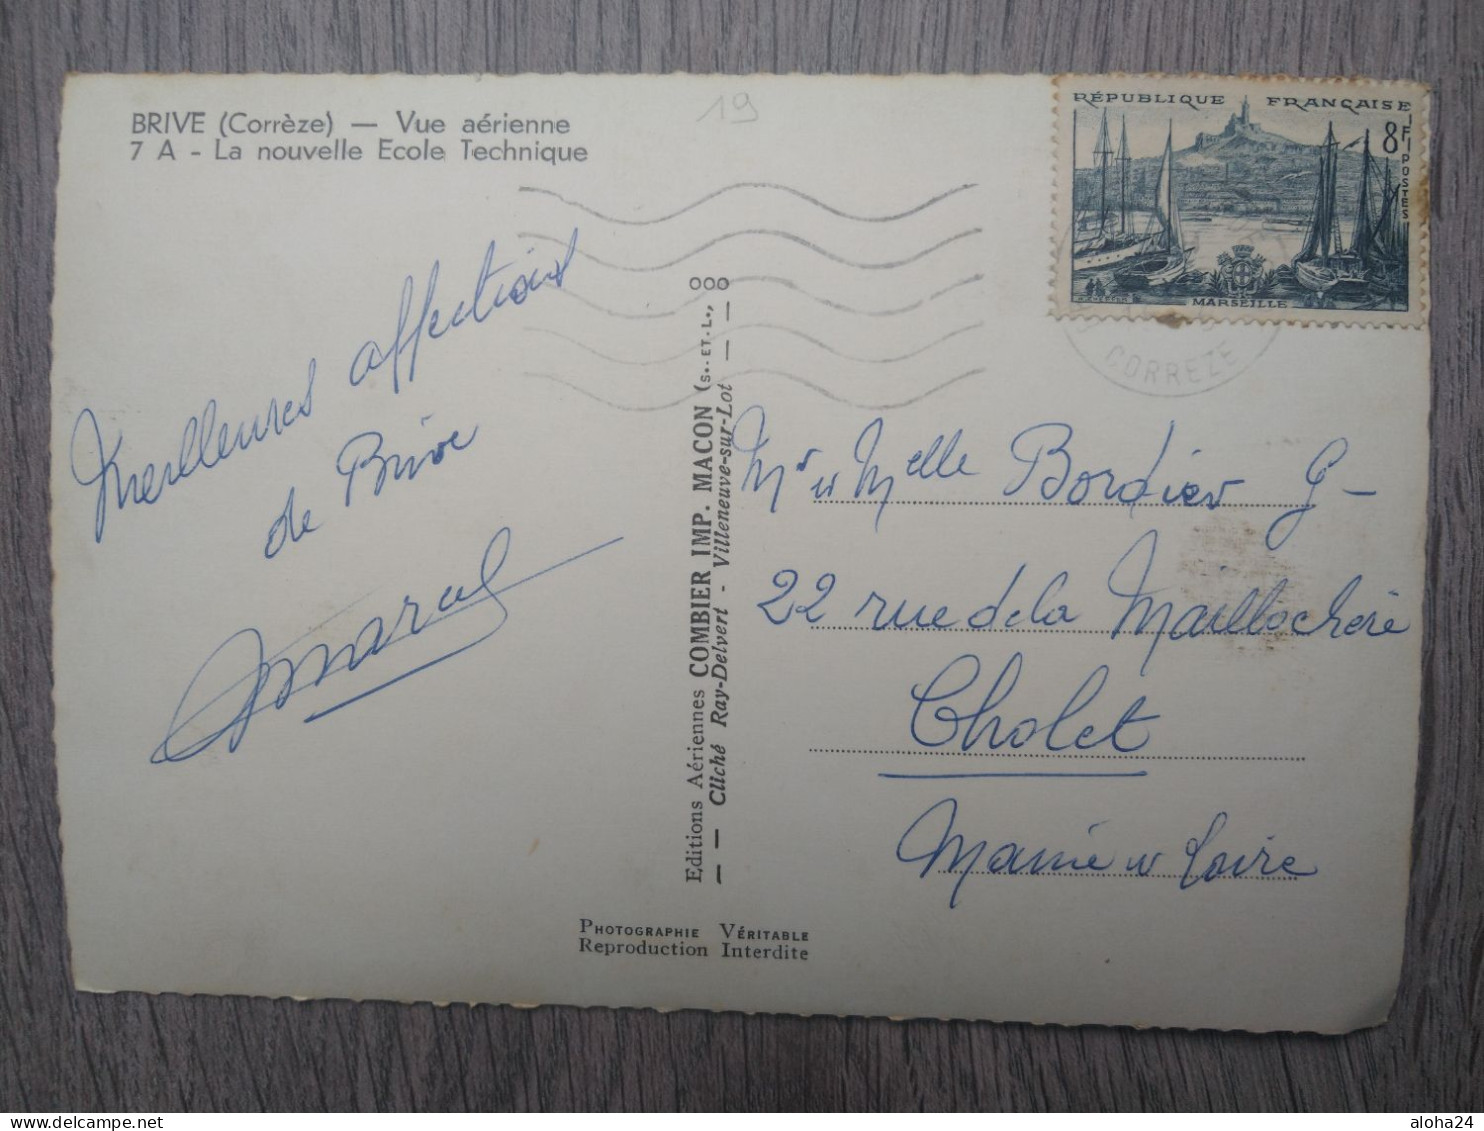 BRIVE (Corrèze) — Vue aérienne
7 A - La nouvelle Ecole Technique
19
RÉPUBLIQUE FRANÇAISE
8F
POSTES
MARSEILLE
CORREZE
Meilleures affections
de Brive
Marcel
Editions Aériennes COMBIER IMP. MACON (S.-ET-L.),
— — Cliché Ray-Delvert - Villeneuve-sur-Lot — —
Mr et Melle Bordier G-
22 rue de la Maillochère
Cholet
Maine et Loire
PHOTOGRAPHIE VÉRITABLE
Reproduction Interdite
delcampe.net
aloha24